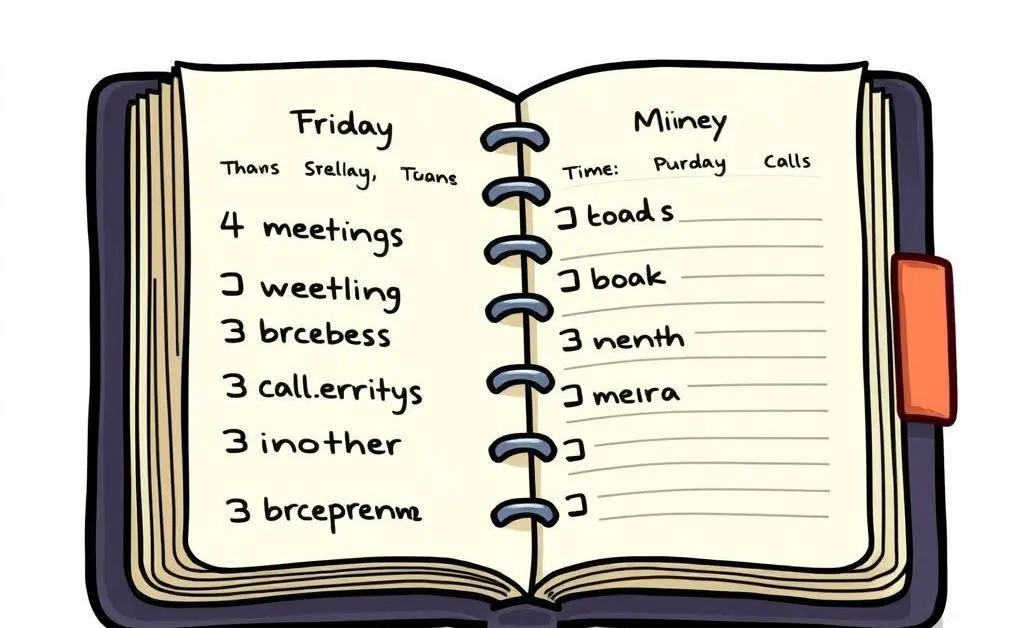 Friday
Thans Srellay, Tuans
4 meetings
weetling
3 brcebess
3 call.erritys
3 inother
3 brceprenm
Miiney
Time: Purday Calls
toads
boak
3 nenth
meira